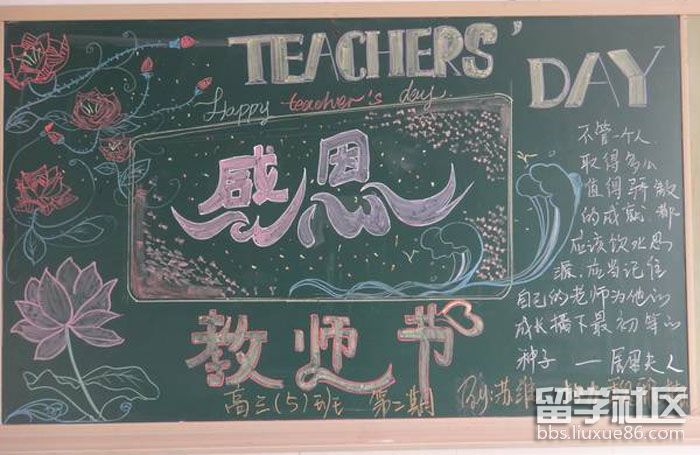 TEACHERS' DAY
Happy teacher's day
感恩
不管一个人
取得多么
值得骄傲
的成就都
应该饮水思
源,应当记住
自己的老师为他的
成长播下最初等的
种子 ——居里夫人
教师节
高三(5)班 第二期
留学社区
bbs.liuxue86.com